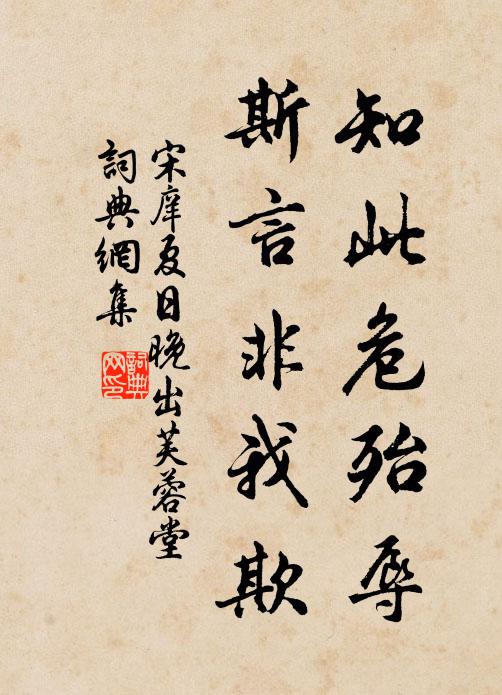 知此危殆辱
斯言非我欺
宋庠夏日晚出芙蓉堂
詞典網集
詞典網印